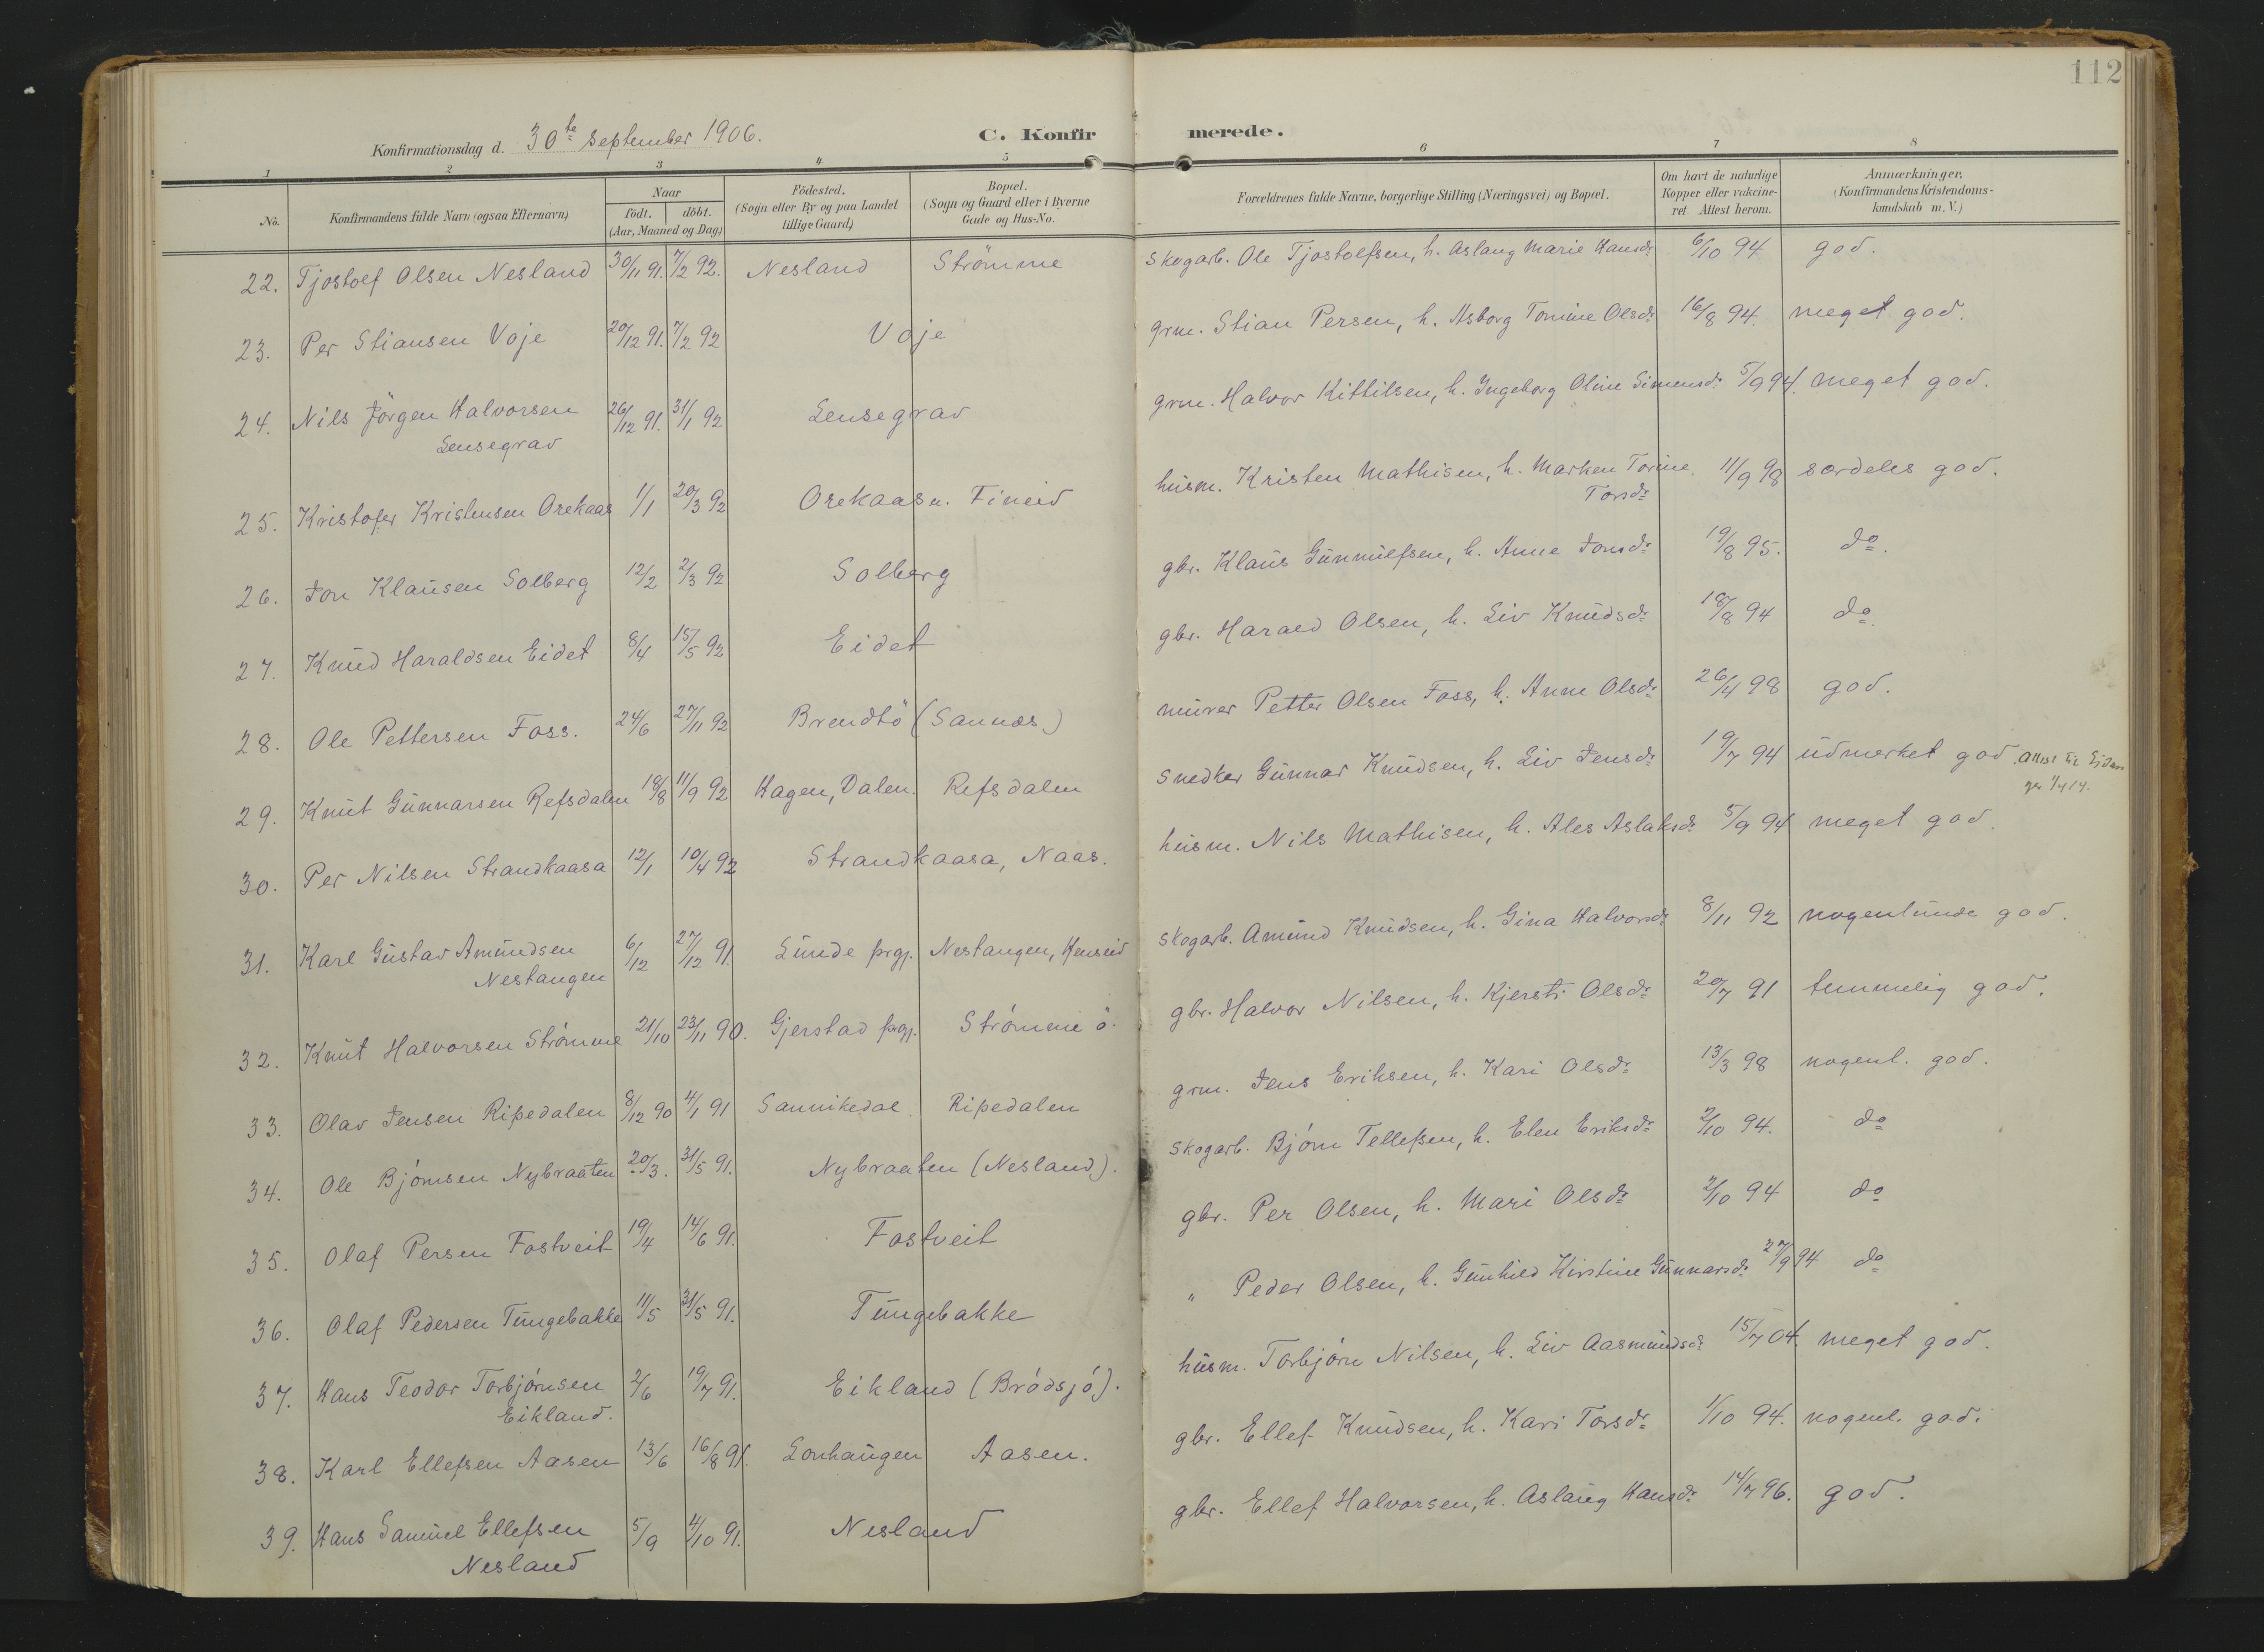 112
Konfirmationsdag d. 30te September 1906.
C. Konfirmerede.
1 2 3 4 5 6 7 8
No.
Konfirmandens fulde Navn (ogsaa Efternavn)
Naar
födt. döbt.
(Aar, Maaned og Dag)
Födested.
(Sogn eller By og paa Landet
tillige Gaard)
Bopæl.
(Sogn og Gaard eller i Byerne
Gade og Hus-No.
Forældrenes fulde Navne, borgerlige Stilling (Næringsvei) og Bopæl.
Om havt de naturlige
Kopper eller vakcine-
ret Attest herom.
Anmærkninger,
(Konfirmandens Kristendoms-
kundskab m. V.)
22. Tjostolf Olsen Nesland 30/11 91. 7/2 92. Nesland Strömme Skogarb. Ole Tjostolfsen, h. Aslaug Marie Hansdr 6/10 94 god.
23. Per Stiansen Voje 20/12 91. 7/2 92 Voje grm. Stian Persen, h. Asborg Tomine Olsdr 16/8 94. meget god.
24. Nils Jörgen Halvorsen 26/12 91. 31/1 92 Lensegrav grm. Halvor Kittilsen, h. Ingeborg Oline Simensdr 5/9 94. meget god.
Lensegrav
25. Kristofer Kristensen Orekaas 1/1 20/3 92 Orekaas u. Fineid husm. Kristen Mathisen, h. Marken Torine 11/9 98 særdeles god.
Torsdr
26. Jon Klausen Solberg 12/2 2/3 92 Solberg gbr. Klaus Gunnulfsen, h. Anne Jonsdr 19/8 95. do.
27. Knud Haraldsen Eidet 8/4 15/5 92 Eidet gbr. Harald Olsen, h. Liv Knudsdr 18/8 94 do.
28. Ole Pettersen Foss. 24/6 27/11 92 Brendtö (Sannæs) murer Petter Olsen Foss, h. Anne Olsdr 26/4 98 god.
29. Knut Gunnarsen Refsdalen 18/8 11/9 92 Hagen, Dalen. Refsdalen Snedker Gunnar Knudsen, h. Liv Jensdr 19/7 94 udmærket god. Attest til
30. Per Nilsen Strandkaasa 12/1 10/4 92 Strandkaasa, Naas. husm. Nils Mathisen, h. Ales Aslaksdr 5/9 94 meget god.
31. Karl Gustav Amundsen 6/12 27/12 91. Lunde prgj. Nestangen, Henseid Skogarb. Amund Knudsen, h. Gina Halvorsdr 8/11 92 nogenlunde god.
Nestangen
32. Knut Halvorsen Strómme 21/10 23/11 90. Gjerstad prgj. Strómme ö. gbr. Halvor Nilsen, h. Kjersti Olsdr 20/7 91 temmelig god.
33. Olav Jensen Ripedalen 8/12 90 4/1 91 Sannikedal Ripedalen grm. Jens Eriksen, h. Kari Olsdr 13/3 98 nogenl. god.
34. Ole Bjórnsen Nybraaten 20/3. 31/5 91. Nybraaten (Nesland). Skogarb. Bjórn Tellefsen, h. Elen Eriksdr 2/10 94. do
35. Olaf Persen Fostveit 19/4 14/6 91. Fostveit gbr. Per Olsen, h. Mari Olsdr 2/10 94 do
36. Olaf Pedersen Tungebakke 11/5 31/5 91. Tungebakke " Peder Olsen, h. Gunhild Kirstine Gunnarsdr 27/9 94 do
37. Hans Teodor Torbjórnsen 2/6 19/7 91. Eikland (Bródsjó). husm. Torbjórn Nilsen, h. Liv Aasmundsdr 15/7 04. meget god.
Eikland.
38. Karl Ellefsen Aasen 13/6 16/8 91. Lonhaugen Aasen. gbr. Ellef Knudsen, h. Kari Torsdr 1/10 94. nogenl. god.
39. Hans Samuel Ellefsen 5/9 4/10 91. Nesland gbr. Ellef Halvorsen, h. Aslaug Hansdr 14/7 96. god.
Nesland